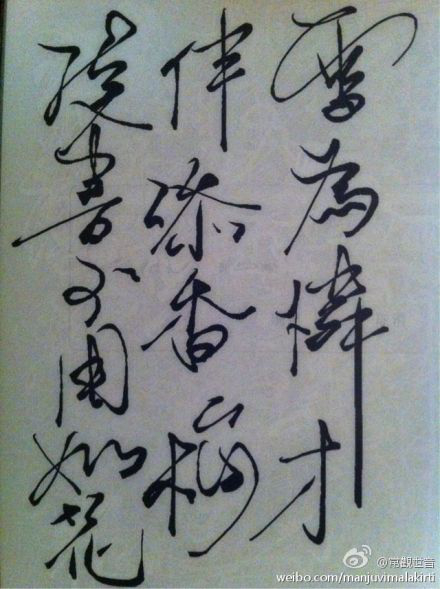 雪為憐才
伴添香梅
書不因如花
@常觀世音
weibo.com/manjuvimalakirti